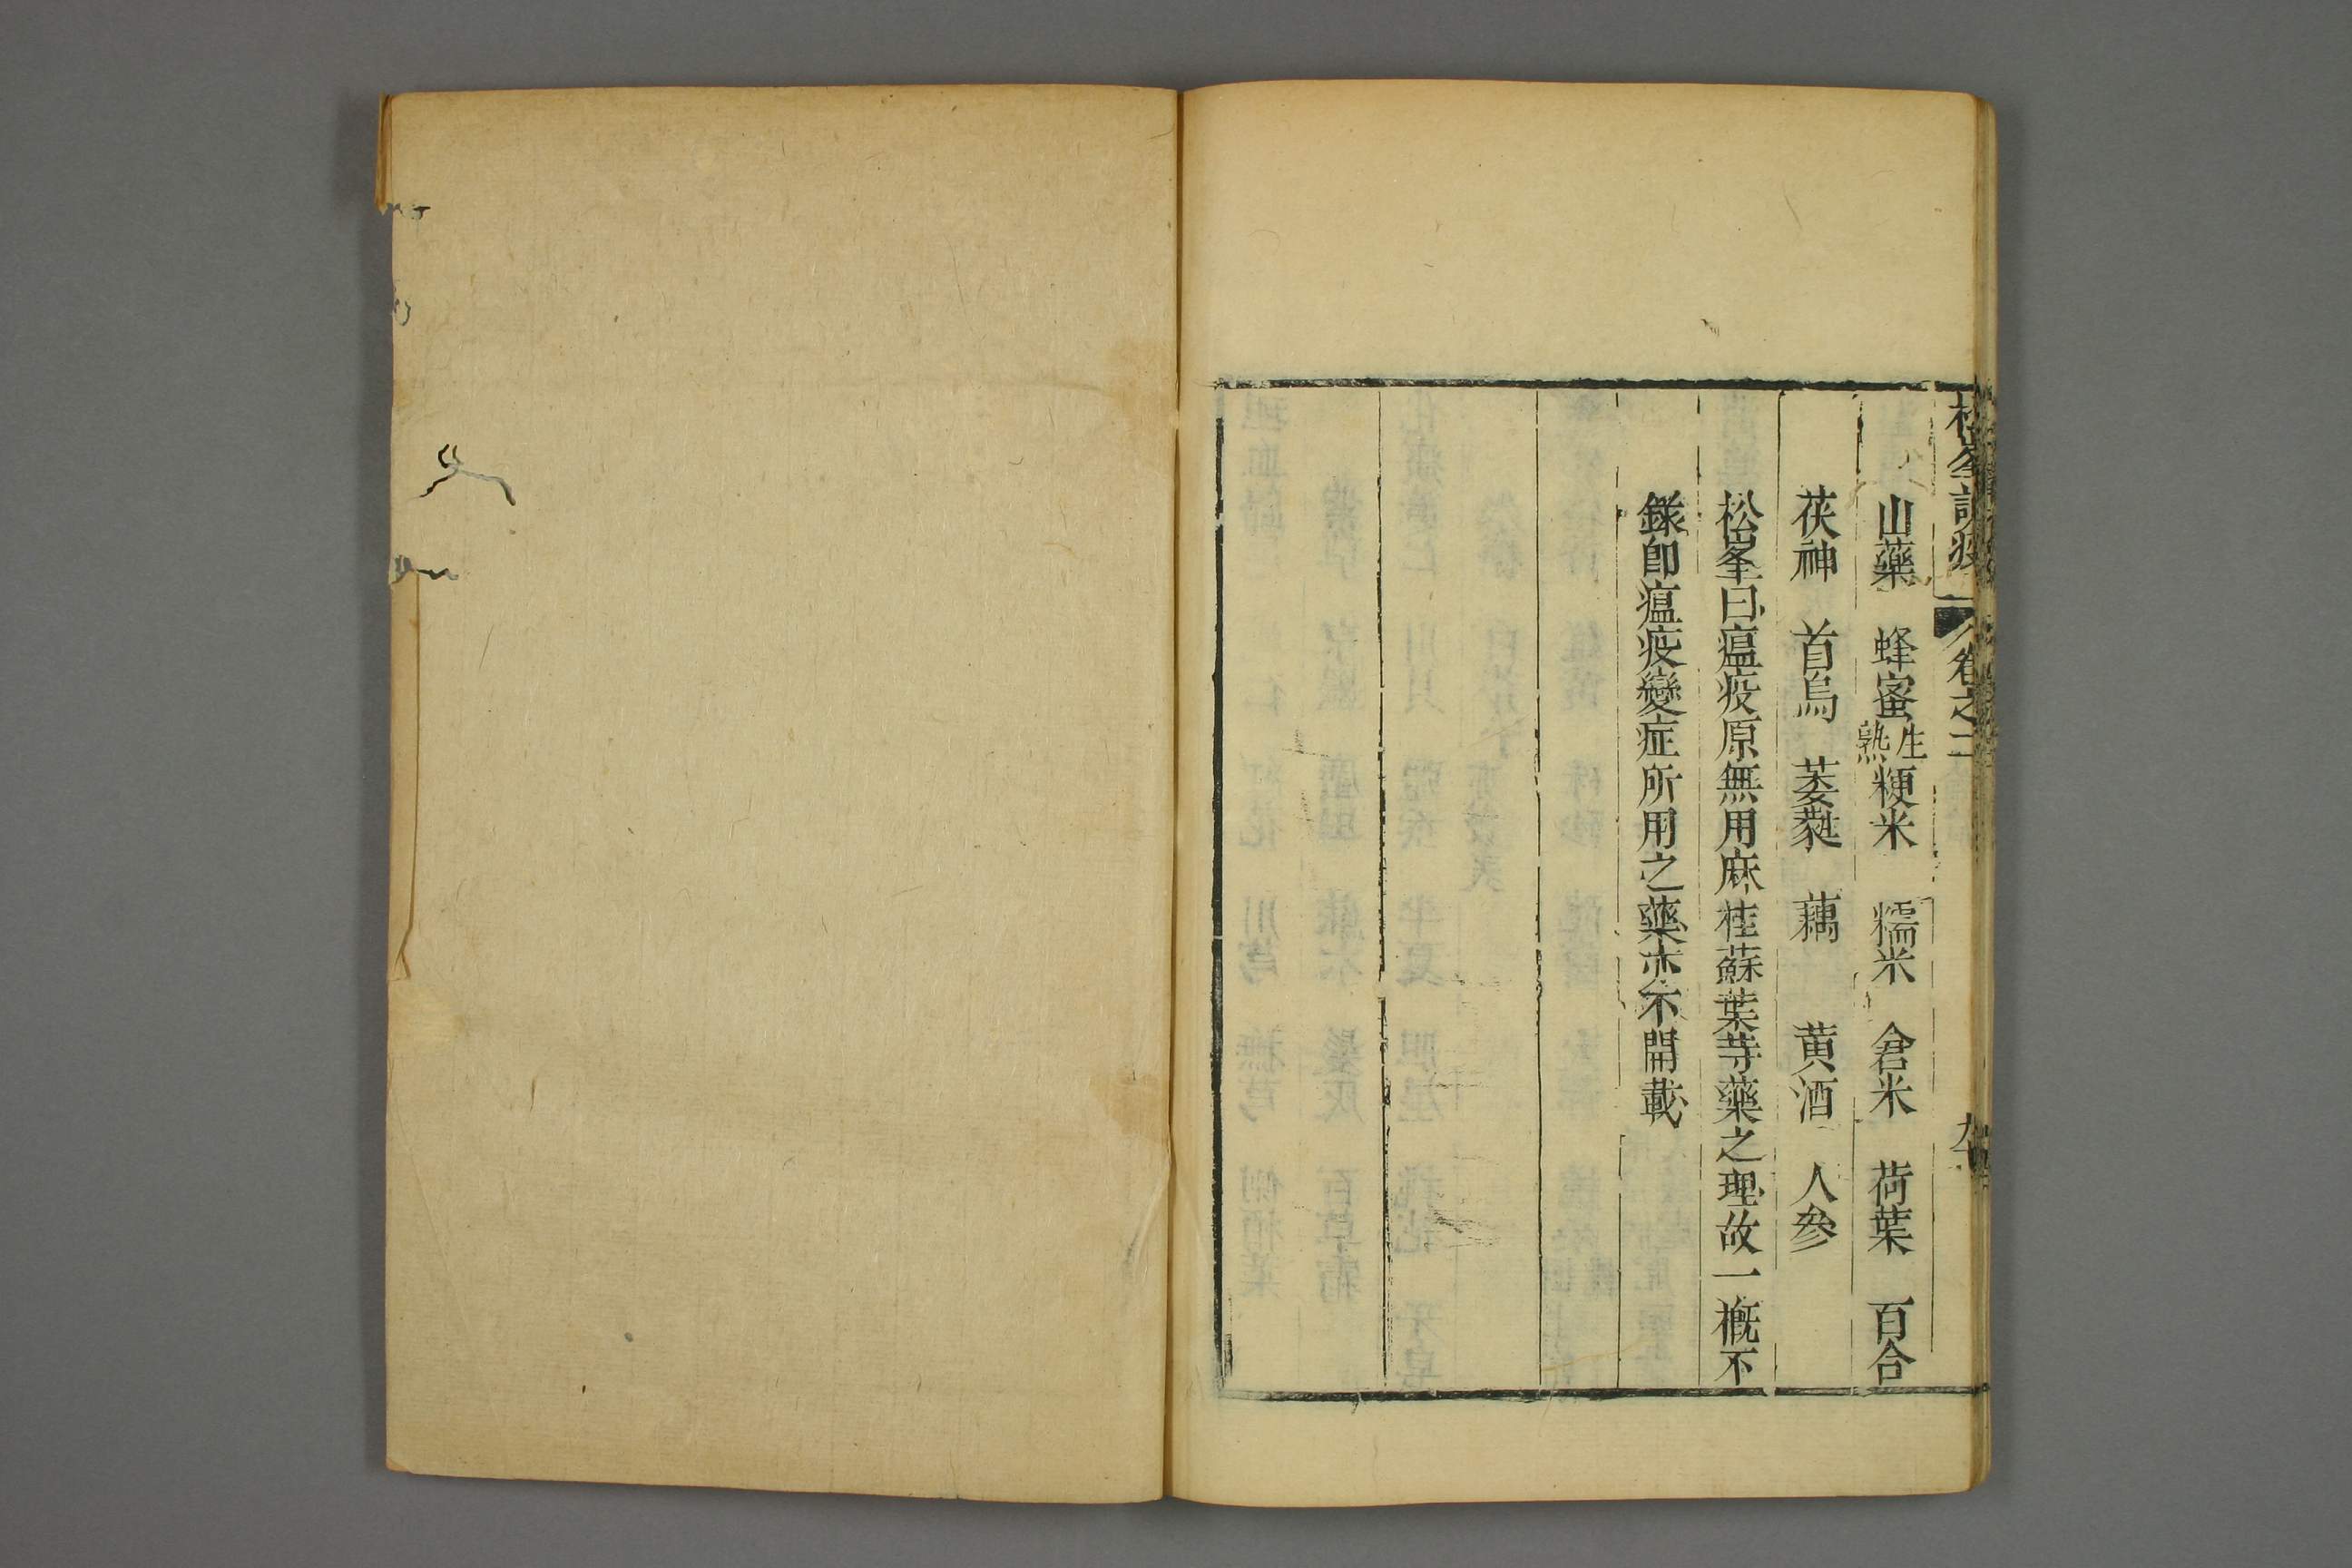 松峯說疫 卷之二
山藥 蜂蜜生熟 粳米 糯米 倉米 荷葉 百合
茯神 首烏 萎蕤 藕 黄酒 人參
松峯曰瘟疫原無用麻桂蘇葉等藥之理故一槪不
錄卽瘟疫變症所用之藥亦不開載